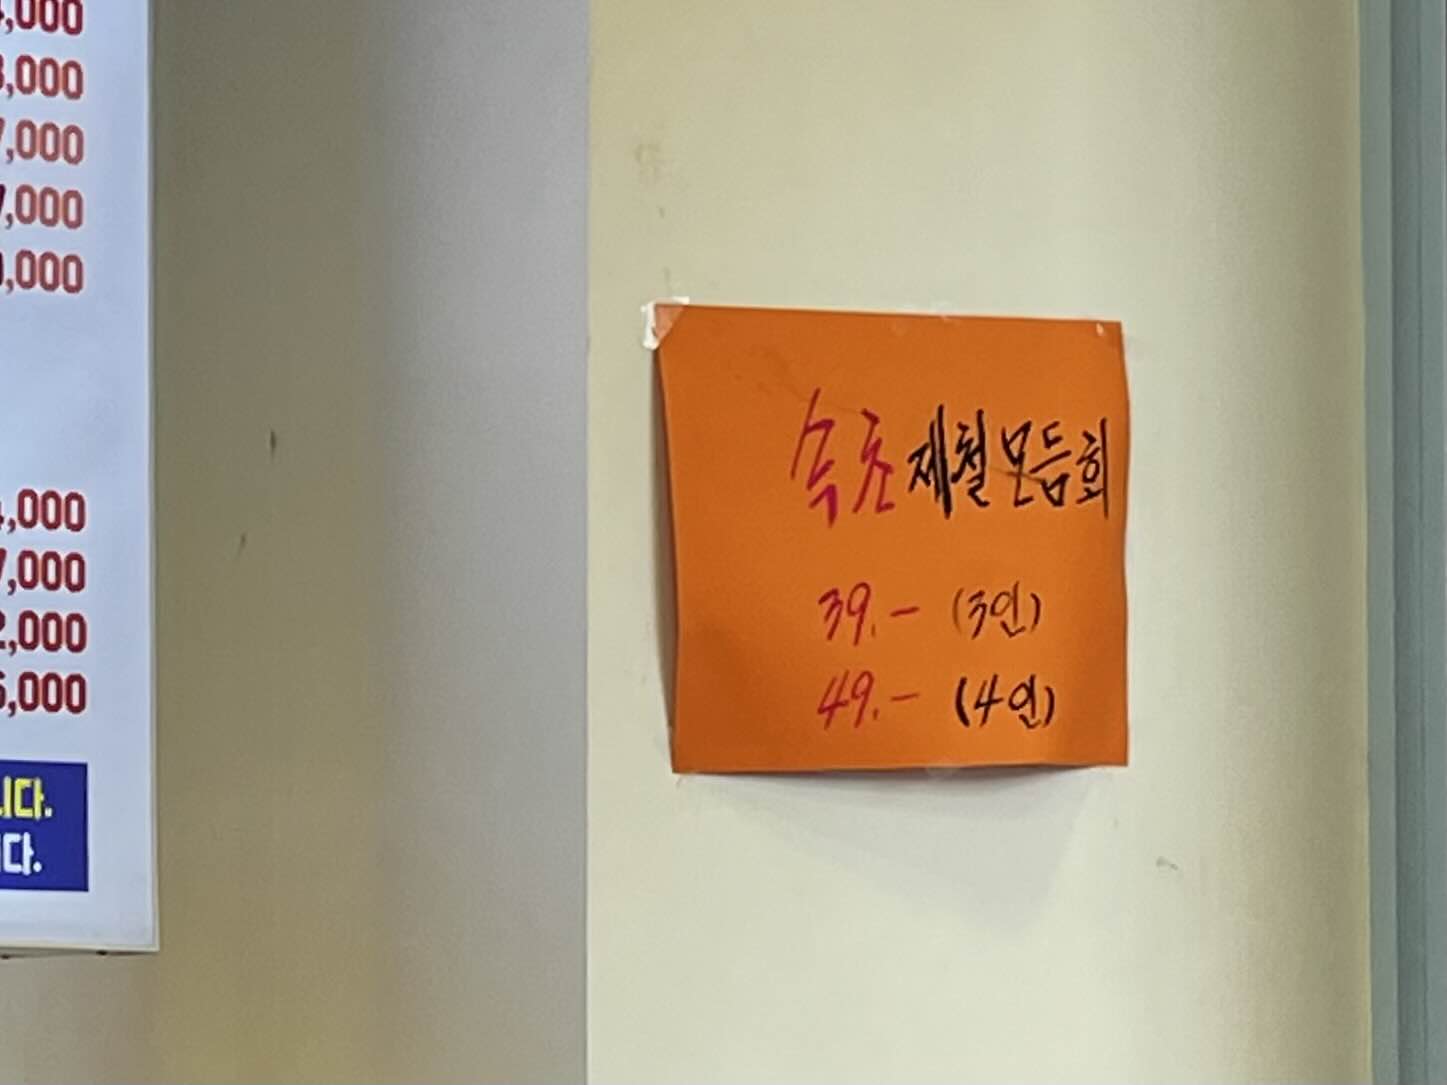 ,000
,000
,000
,000
,000
,000
,000
,000
,000
니다.
다.
속초 제철모듬회
39.- (3인)
49.- (4인)